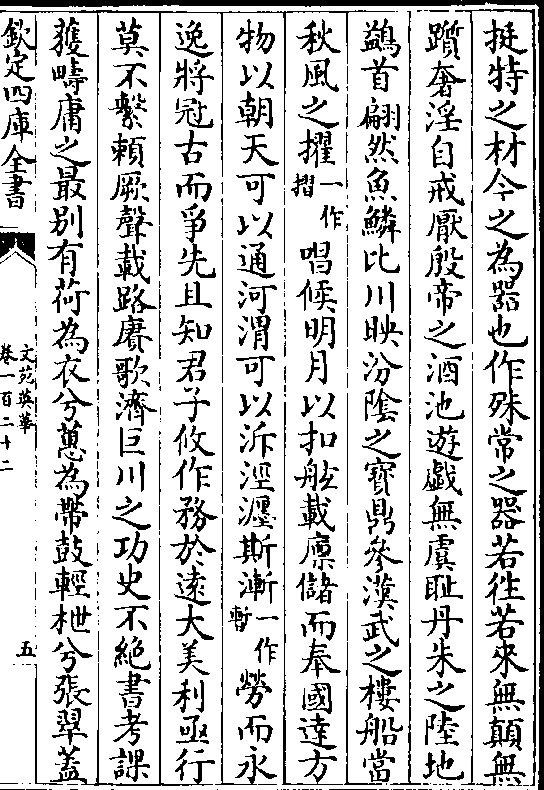 挺特之材今之為器也作殊常之器若徃若來無顛無
躓奢淫自戒厭殷帝之酒池遊戲無虞耻丹朱之陸地
鷁首翩然魚鱗比川映汾隂之寳鼎參漢武之樓船當
秋風之擢一作摺唱候明月以扣舷載廪儲而奉國達方
物以朝天可以通河渭可以泝涇瀍斯漸一作暫勞而永
逸將冠古而爭先且知君子攸作務於逺大美利亟行
莫不繫頼厥聲載路賡歌濟巨川之功史不絶書考課
獲疇庸之最别有荷為衣兮蕙為帶鼓輕枻兮張翠蓋
欽定四庫全書
文苑英華
卷一百二十二
五